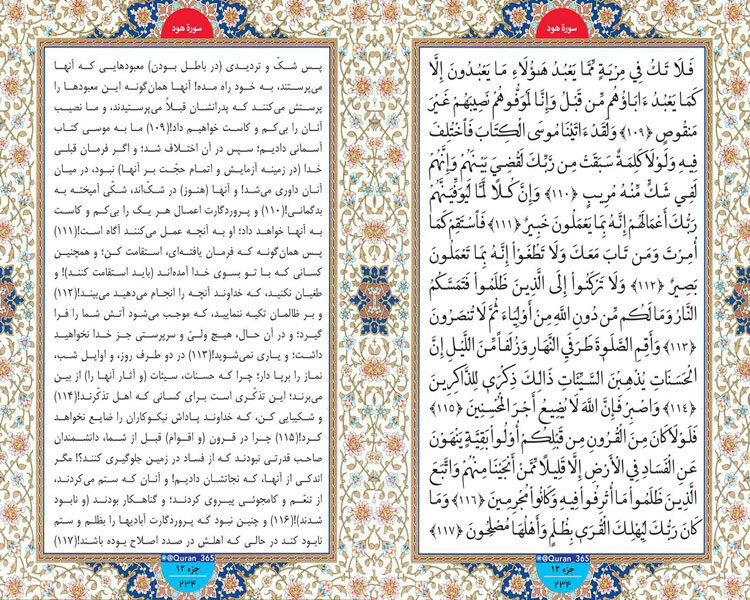 سورة هود
فَلَا تَكُ فِي مِرْيَةٍ مِّمَّا يَعْبُدُ هَٰؤُلَاءِ مَا يَعْبُدُونَ إِلَّا
كَمَا يَعْبُدُ ءَابَاؤُهُم مِّن قَبْلُ وَإِنَّا لَمُوَفُّوهُمْ نَصِيبَهُمْ غَيْرَ
مَنقُوصٍ ﴿۱۰۹﴾ وَلَقَدْ ءَاتَيْنَا مُوسَى الْكِتَابَ فَاخْتُلِفَ
فِيهِ وَلَوْلَا كَلِمَةٌ سَبَقَتْ مِن رَّبِّكَ لَقُضِيَ بَيْنَهُمْ وَإِنَّهُمْ
لَفِي شَكٍّ مِّنْهُ مُرِيبٍ ﴿۱۱۰﴾ وَإِنَّ كُلًّا لَّمَّا لَيُوَفِّيَنَّهُمْ
رَبُّكَ أَعْمَالَهُمْ إِنَّهُ بِمَا يَعْمَلُونَ خَبِيرٌ ﴿۱۱۱﴾ فَاسْتَقِمْ كَمَا
أُمِرْتَ وَمَن تَابَ مَعَكَ وَلَا تَطْغَوْا إِنَّهُ بِمَا تَعْمَلُونَ
بَصِيرٌ ﴿۱۱۲﴾ وَلَا تَرْكَنُوا إِلَى الَّذِينَ ظَلَمُوا فَتَمَسَّكُمُ
النَّارُ وَمَا لَكُم مِّن دُونِ اللَّهِ مِنْ أَوْلِيَاءَ ثُمَّ لَا تُنصَرُونَ
﴿۱۱۳﴾ وَأَقِمِ الصَّلَوٰةَ طَرَفَيِ النَّهَارِ وَزُلَفًا مِّنَ اللَّيْلِ إِنَّ
الْحَسَنَاتِ يُذْهِبْنَ السَّيِّئَاتِ ذَٰلِكَ ذِكْرَىٰ لِلذَّاكِرِينَ
﴿۱۱۴﴾ وَاصْبِرْ فَإِنَّ اللَّهَ لَا يُضِيعُ أَجْرَ الْمُحْسِنِينَ ﴿۱۱۵﴾
فَلَوْلَا كَانَ مِنَ الْقُرُونِ مِن قَبْلِكُمْ أُولُوا بَقِيَّةٍ يَنْهَوْنَ
عَنِ الْفَسَادِ فِي الْأَرْضِ إِلَّا قَلِيلًا مِّمَّنْ أَنجَيْنَا مِنْهُمْ وَاتَّبَعَ
الَّذِينَ ظَلَمُوا مَا أُتْرِفُوا فِيهِ وَكَانُوا مُجْرِمِينَ ﴿۱۱۶﴾ وَمَا
كَانَ رَبُّكَ لِيُهْلِكَ الْقُرَىٰ بِظُلْمٍ وَأَهْلُهَا مُصْلِحُونَ ﴿۱۱۷﴾
@Quran_365
جزء ۱۲
۲۳۴
سورة هود
پس شکّ و تردیدی (در باطل بودن) معبودهایی که آنها
می‌پرستند، به خود راه مده! آنها همان‌گونه این معبودها را
پرستش می‌کنند که پدرانشان قبلاً می‌پرستیدند، و ما نصیب
آنان را بی‌کم و کاست خواهیم داد!(۱۰۹) ما به موسی کتاب
آسمانی دادیم؛ سپس در آن اختلاف شد؛ و اگر فرمان قبلی
خدا (در زمینه آزمایش و اتمام حجّت بر آنها) نبود، در میان
آنان داوری می‌شد! و آنها (هنوز) در شک‌اند، شکّی آمیخته به
بدگمانی!(۱۱۰) و پروردگارت اعمال هر یک را بی‌کم و کاست
به آنها خواهد داد؛ او به آنچه عمل می‌کنند آگاه است!(۱۱۱)
پس همان‌گونه که فرمان یافته‌ای، استقامت کن؛ و همچنین
کسانی که با تو بسوی خدا آمده‌اند (باید استقامت کنند)! و
طغیان نکنید، که خداوند آنچه را انجام می‌دهید می‌بیند!(۱۱۲)
و بر ظالمان تکیه ننمایید، که موجب می‌شود آتش شما را فرا
گیرد؛ و در آن حال، هیچ ولیّ و سرپرستی جز خدا نخواهید
داشت؛ و یاری نمی‌شوید!(۱۱۳) در دو طرف روز، و اوایل شب،
نماز را برپا دار؛ چرا که حسنات، سیئات (و آثار آنها را) از بین
می‌برند؛ این تذکّری است برای کسانی که اهل تذکّرند!(۱۱۴)
و شکیبایی کن، که خداوند پاداش نیکوکاران را ضایع نخواهد
کرد!(۱۱۵) چرا در قرون (و اقوام) قبل از شما، دانشمندان
صاحب قدرتی نبودند که از فساد در زمین جلوگیری کنند؟! مگر
اندکی از آنها، که نجاتشان دادیم! و آنان که ستم می‌کردند،
از تنعّم و کامجوئی پیروی کردند؛ و گناهکار بودند (و نابود
شدند)!(۱۱۶) و چنین نبود که پروردگارت آبادیها را بظلم و ستم
نابود کند در حالی که اهلش در صدد اصلاح بوده باشند!(۱۱۷)
@Quran_365
جزء ۱۲
۲۳۴